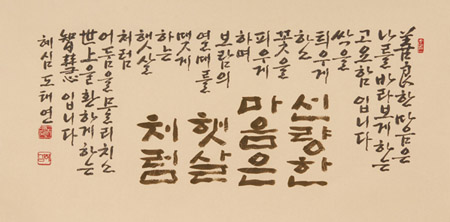 善良한 마음은
나를 바라보게 하는
고요함 입니다
싹을
틔우게
하고
꽃을
피우게
하며
보람의
열매를
맺게
하는
햇살
처럼
어둠을 물리치고
世上을 환하게 하는
智慧 입니다
혜심 도태연
선량한
마음은
햇살
처럼